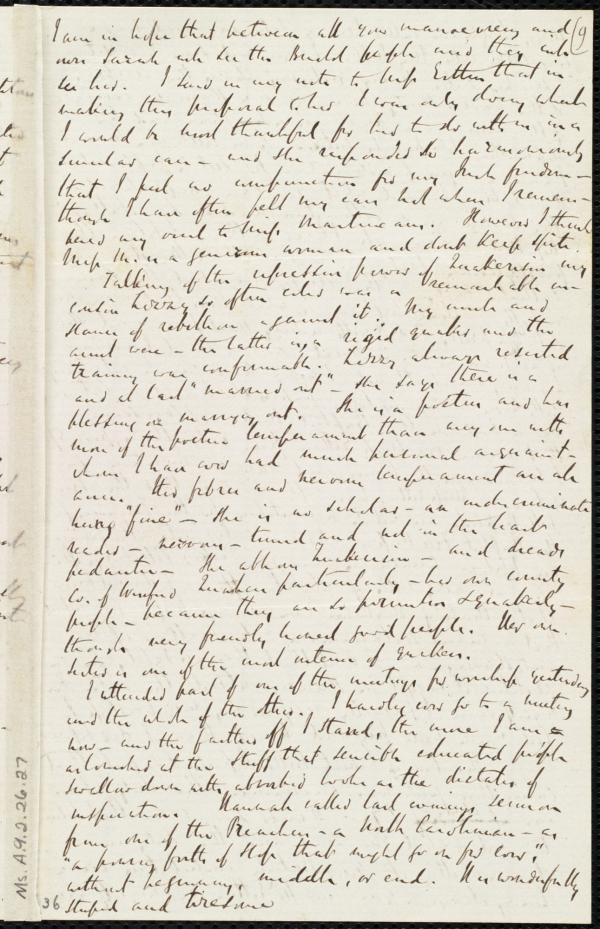 (9
I am in hope that between all your manoeuvres and
own Sarah will see the Build people and they will
see her. I said in my note to Miss Estlin that in
making this proposal to her I was only doing what
I would be most thankful for her to do with me in a
similar case - and she responded so harmoniously
that I feel no compunction for my Irish freedom -
though I have often felt my ears hot when I remem-
bered my visit to Miss Martineau. However I think
Miss M. is a generous woman and dont keep spite
Talking of the repressive power of Quakerism my
cousin Lizzy so often was a remarkable in-
stance of rebellion against it. My uncle and
aunt were - the latter is a rigid quaker and the
training was conformable. Lizzy always resisted
and at last "married out" - she says there is a
blessing on marrying out. She is a poetess and has
more of the poetic temperament than any one with
whom I have ever had much personal acquaint-
ance. Her fibre and nervous temperament are all
"fine" - she is no scholar - an indiscriminate
reader - nervous - timid and not in the least
pedantic - She abhors Quakerism - and dreads
Co. of Wexford Quakers particularly - her own county
people - because they are so squakerly -
though very friendly honest good people. Her own
sister is one of the most intense of quakers.
I attended part of one of the meetings for worship yesterday
and the whole of the other. I hardly ever go to a meeting
now - and the farther off I stand, the more I am
astonished at the stuff that sensible educated people
swallow down with absorbed looks as the dictates of
inspiration. Hannah called last evenings sermon
from one of the Preachers - a North Carolinian - as
"a pouring forth of slops that might go on for ever",
without beginning, middle, or end. It is wonderfully
stupid and tiresome
36
Ms. A.9.2.26.27